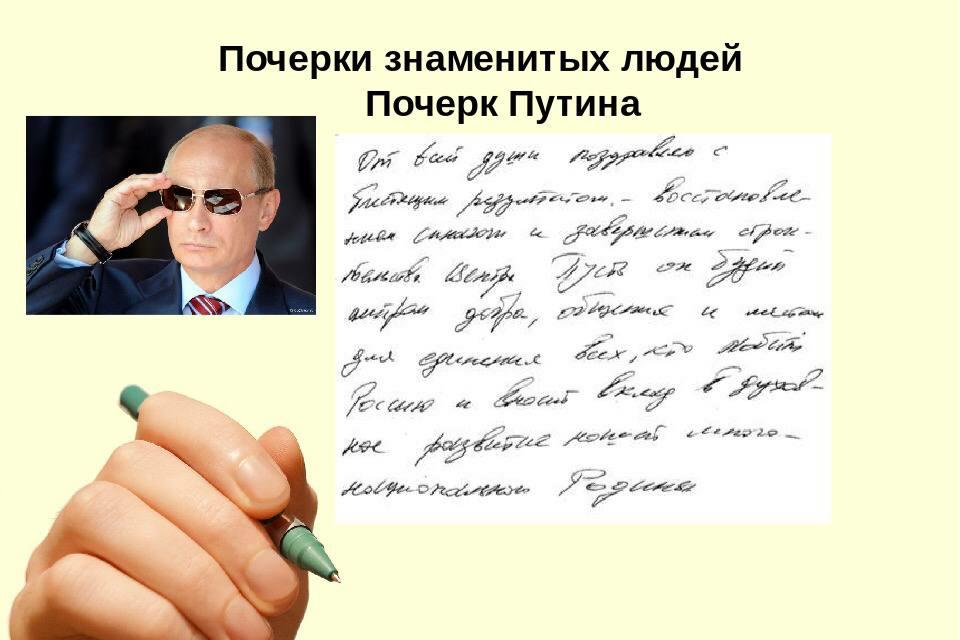 Почерки знаменитых людей
Почерк Путина
От всей души поздравляю с
блестящим результатом – восстановле-
нием синагоги и завершением строи-
тельства Центра Пусть он будет
центром добра, общения и местом
для единения всех, кто любит
Россию и вносит вклад в духов-
ное развитие нашей много-
национальной Родины